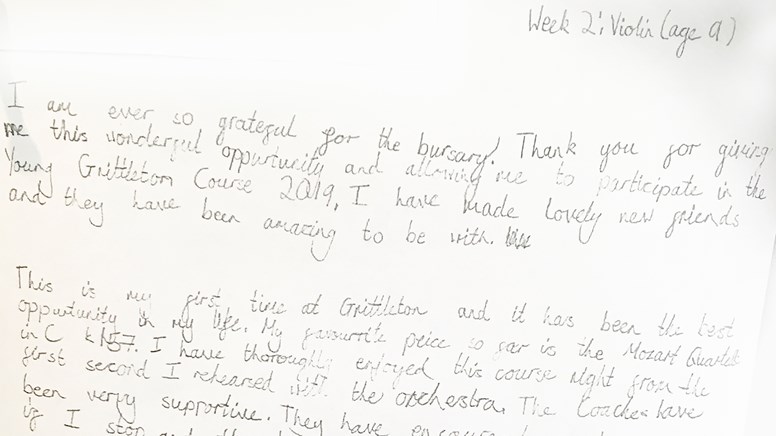 Week 2: Violin (age 9)
I am ever so grateful for the bursary! Thank you for giving
me this wonderful oppurtunity and allowing me to participate in the
Young Grittleton Course 2019, I have made lovely new friends
and they have been amazing to be with.
This is my first time at Grittleton and it has been the best
oppurtunity in my life. My favourite peice so far is the Mozart Quartet
in C k157. I have thoroughly enjoyed this course right from the
first second I rehearsed with the orchestra. The Coaches have
been very supportive. They have
if I stop and